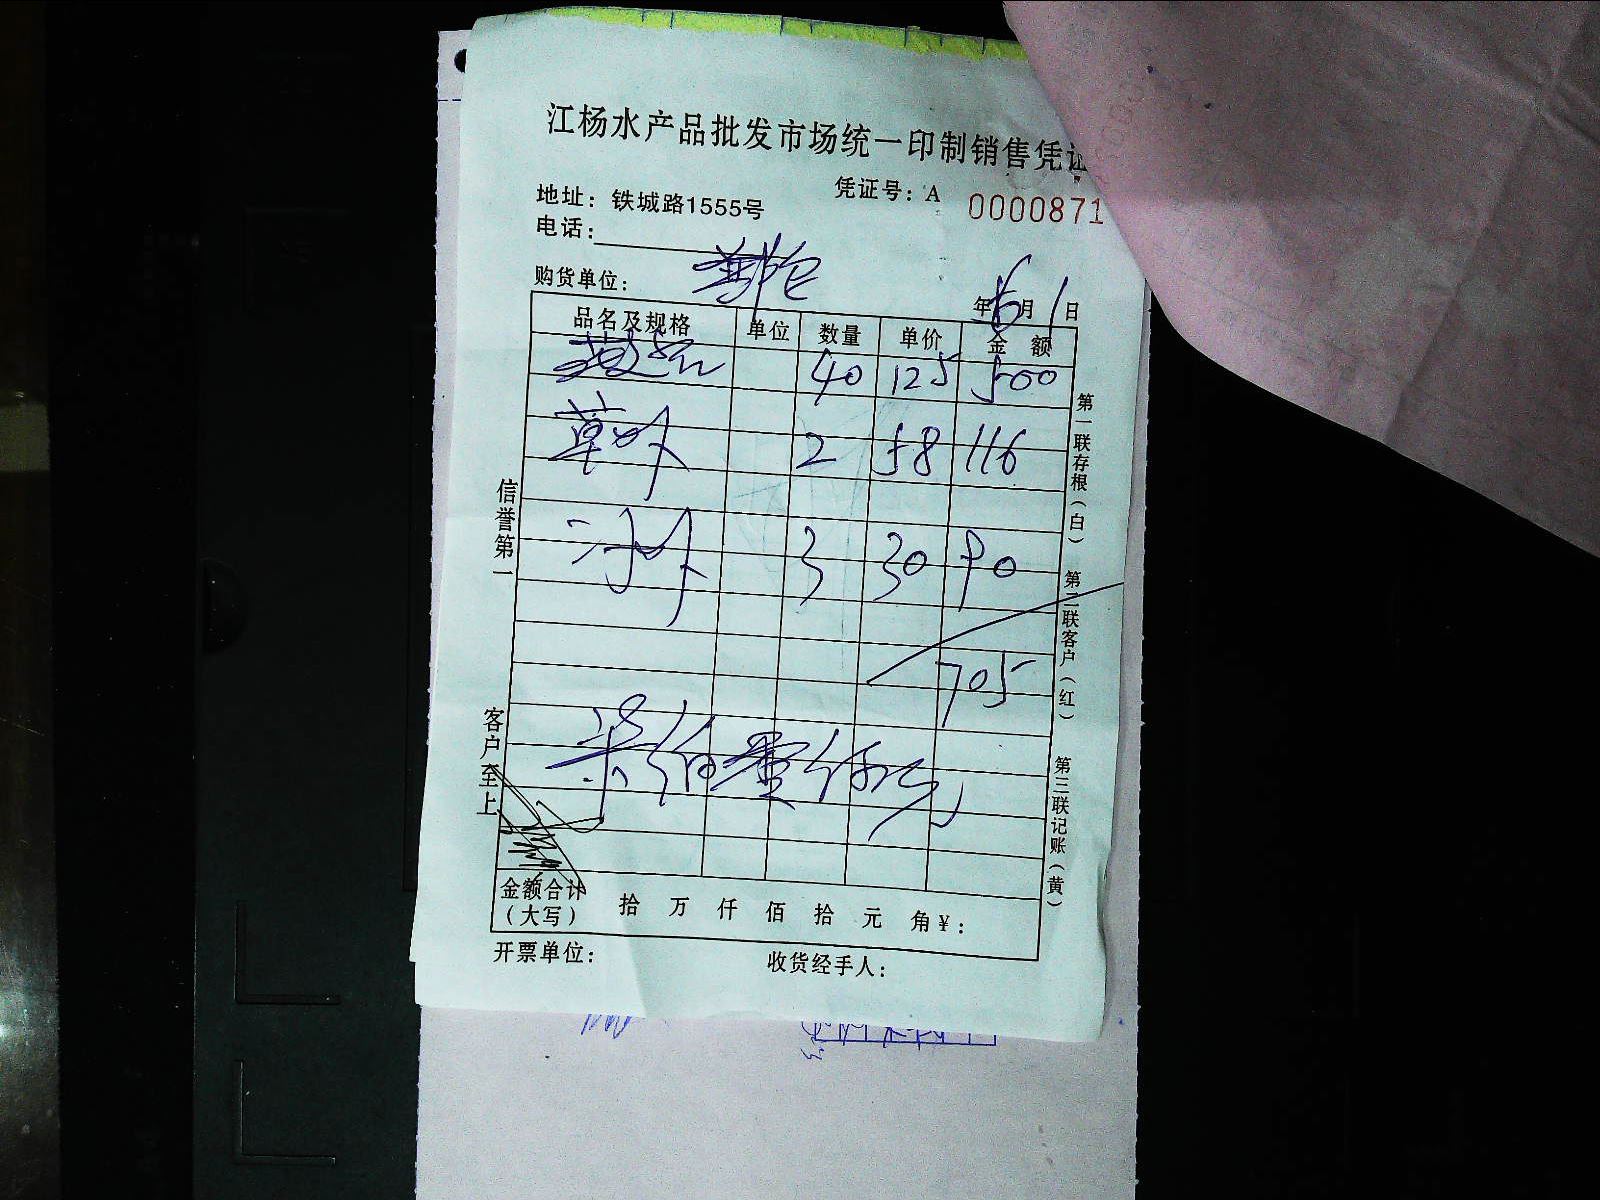 江杨水产品批发市场统一印制销售凭证
地址：铁城路1555号 凭证号：A 0000871
电话：
购货单位： 年 6 月 1 日
品名及规格 单位 数量 单价 金额
40 125 500
草虾 2 58 116
河虾 3 30 90
705
柒佰零伍元
金额合计（大写） 拾 万 仟 佰 拾 元 角 ¥：
开票单位： 收货经手人：
信誉第一
客户至上
第一联存根（白）
第二联客户（红）
第三联记账（黄）